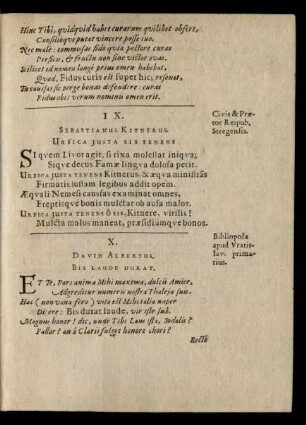 Hinc Tibi, quidquid habet curarum quilibet offert,
Consilioque putat vincere posse tuo.
Nec male: commissas fido quia pectore curas
Perficis, & fructu non sine victor ovas.
Scilicet id nomen longè prius omen habebat,
Quod, Fidus curis est super hic, resonat.
Tu causas sic perge bonas defendere: curas
Fidus obis: verum nominis omen erit.
IX.
SEBASTIANUS KITNERUS,
URSICA JUSTA SIS TENENS
Civis & Præ-
tor Reipub,
Stregensis.
SI qvem Livor agit, si rixa molestat iniqva;
Siqve decus Famæ lingva dolosa petit.
URSICA JUSTA TENENS Kitnerus, & æqva ministrãs
Firmatis justam legibus addit opem.
Æqvali Nemesi causas examinat omnes,
Freptiqvè bonis mulctat ob ausa malos.
URSICA JUSTA TENENS ô SIS, Kitnere, virilis!
Mulcta malos maneat, præsidiumqve bonos.
X.
DAVID ALBERTUS,
BIS LAUDE DURAT,
Bibliopola
apud Vratis-
lavi. prima-
rius.
ET Te, Pars anima Mihi maxima, dulcis Amice,
Adgreditur numeris nostra Thaleja suis.
Hac (non vana fero) vita est Mihi talia nuper
Dicere: Bis durat laude, vir iste sua.
Magnus honor! dic, unde Tibi Laus ista, Sodalis?
Fallor? an à Claris fulget honore choris?
Rectè